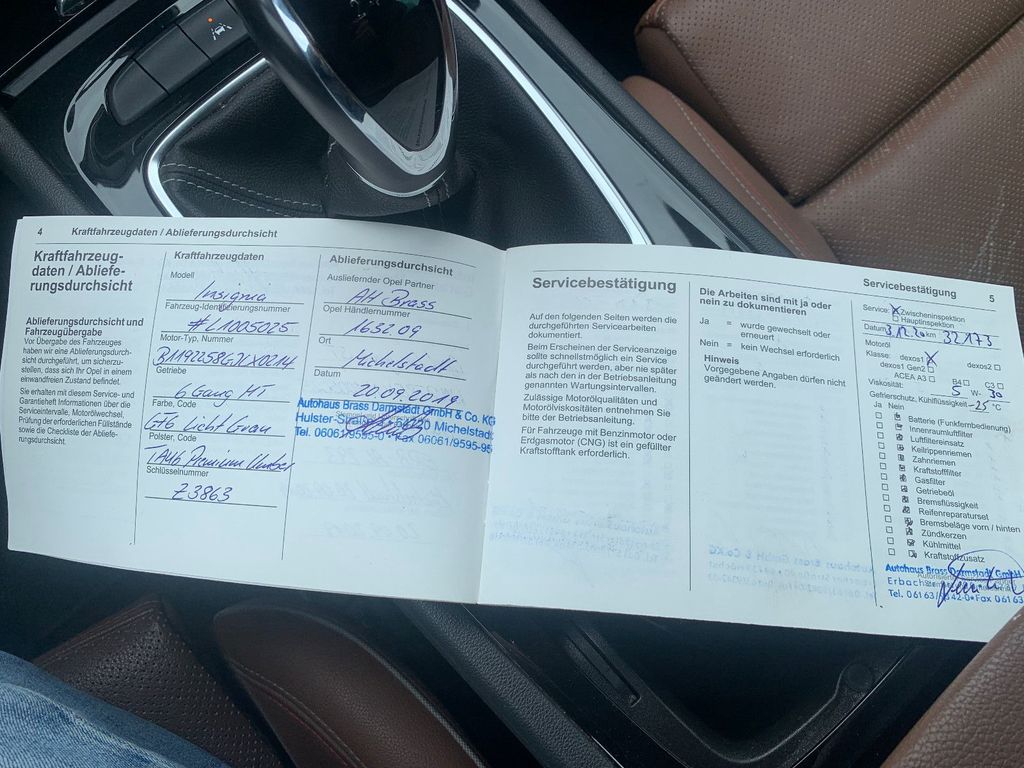 4 Kraftfahrzeugdaten / Ablieferungsdurchsicht
Kraftfahrzeug-
daten / Abliefe-
rungsdurchsicht
Ablieferungsdurchsicht und
Fahrzeugübergabe
Vor Übergabe des Fahrzeuges
haben wir eine Ablieferungsdurch-
sicht durchgeführt, um sicherzu-
stellen, dass sich Ihr Opel in einem
einwandfreien Zustand befindet.
Sie erhalten mit diesem Service- und
Garantieheft Informationen über die
Serviceintervalle, Motorölwechsel,
Prüfung der erforderlichen Füllstände
sowie die Checkliste der Abliefe-
rungsdurchsicht.
Kraftfahrzeugdaten
Modell
Insignia
Fahrzeug-Identifizierungsnummer
#L1005025
Motor-Typ, Nummer
Getriebe
6 Gang MT
Farbe, Code
G76 Licht Grau
Polster, Code
TAUB, Premium
Schlüsselnummer
Z3863
Ablieferungsdurchsicht
Ausliefernder Opel Partner
AH Brass
Opel Händlernummer
1652 09
Ort
Michelstadt
Datum
20.09.2019
Autohaus Brass Darmstadt GmbH & Co. KG
Hulster-Straße 64720 Michelstadt
Tel. 06061/9595-0 · Fax 06061/9595-95
Servicebestätigung
Auf den folgenden Seiten werden die
durchgeführten Servicearbeiten
dokumentiert.
Beim Erscheinen der Serviceanzeige
sollte schnellstmöglich ein Service
durchgeführt werden, aber nie später
als nach den in der Betriebsanleitung
genannten Wartungsintervallen.
Zulässige Motorölqualitäten und
Motorölviskositäten entnehmen Sie
bitte der Betriebsanleitung.
Für Fahrzeuge mit Benzinmotor oder
Erdgasmotor (CNG) ist ein gefüllter
Kraftstofftank erforderlich.
Die Arbeiten sind mit ja oder
nein zu dokumentieren
Ja = wurde gewechselt oder
erneuert
Nein = kein Wechsel erforderlich
Hinweis
Vorgegebene Angaben dürfen nicht
geändert werden.
Servicebestätigung 5
Service: Zwischeninspektion
Hauptinspektion
Datum 3.12.20 km 32173
Motoröl
Klasse: dexos1 dexos2
dexos1 Gen2
ACEA A3 B4 C3
Viskosität: 5 W- 30
Gefrierschutz, Kühlflüssigkeit -25 °C
Ja Nein
Batterie (Funkfernbedienung)
Innenraumluftfilter
Luftfiltereinsatz
Keilrippenriemen
Zahnriemen
Kraftstofffilter
Gasfilter
Getriebeöl
Bremsflüssigkeit
Reifenreparaturset
Bremsbeläge vorn / hinten
Zündkerzen
Kühlmittel
Kraftstoffzusatz
Autohaus Brass Darmstadt GmbH
Erbacher
Tel. 061 63 / 42-0 • Fax 061 63